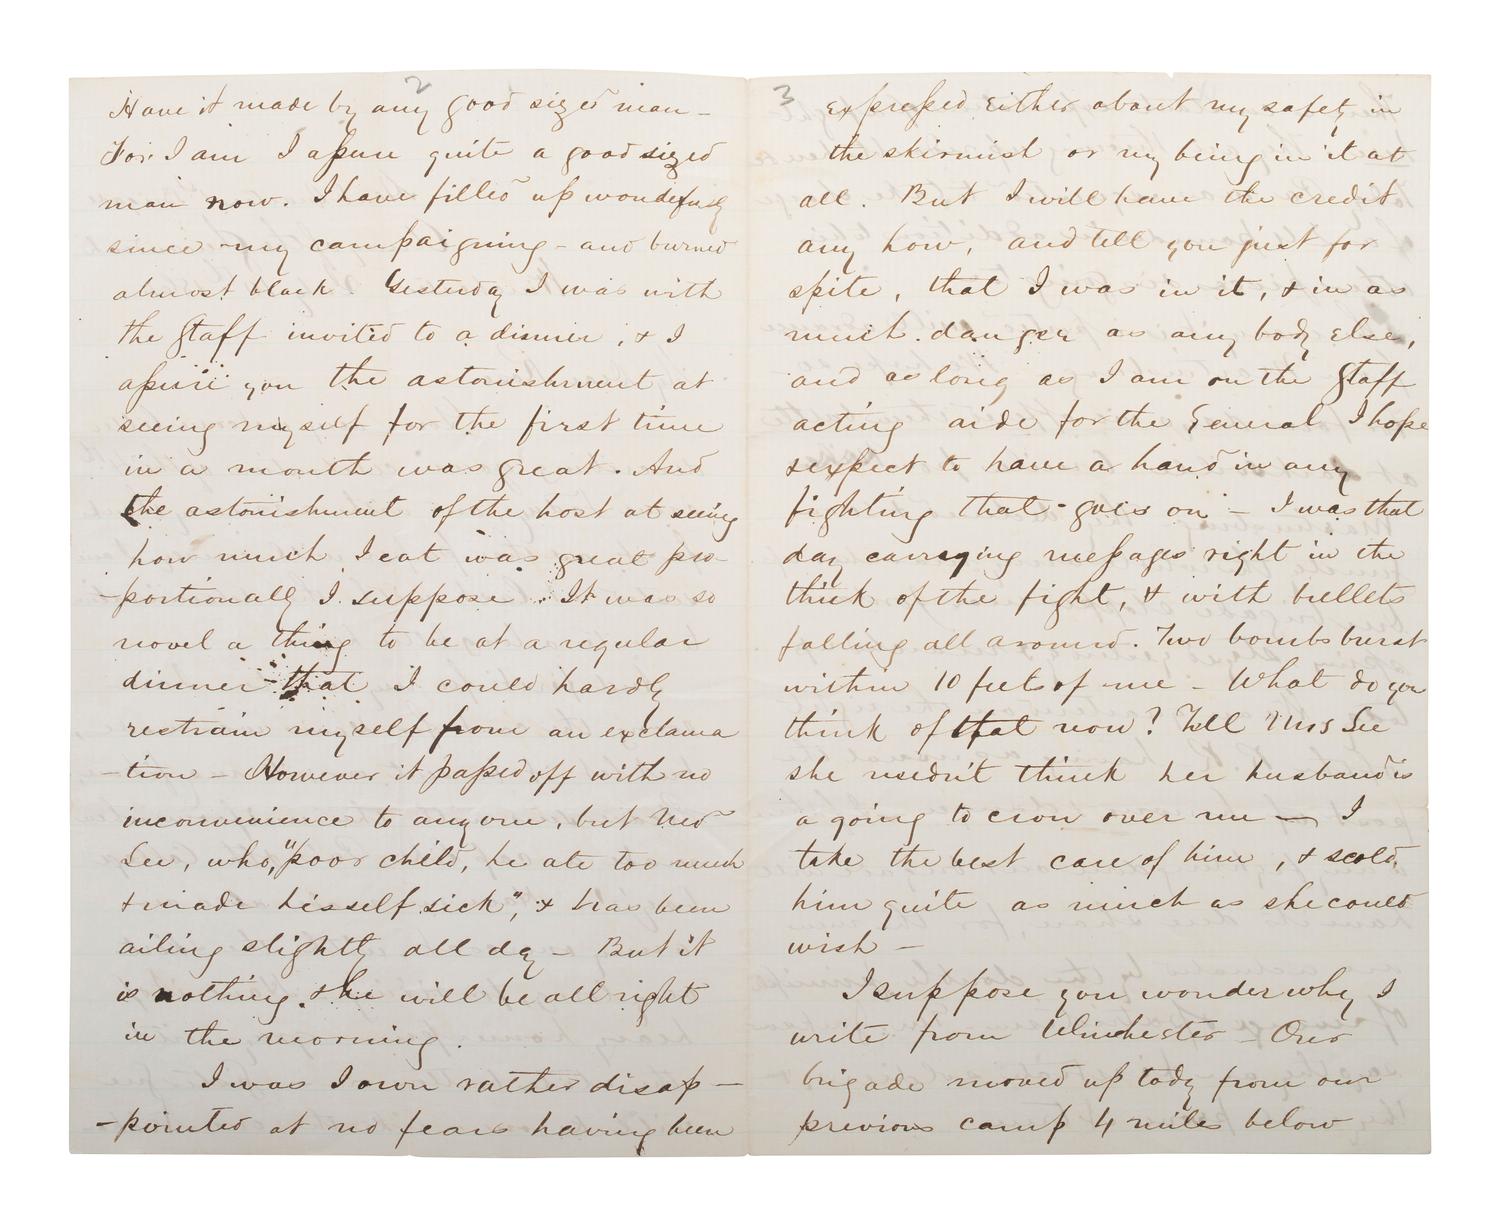 2
Have it made by any good sized man –
For I am I assure quite a good sized
man now. I have filled up wonderfully
since my campaigning – and burned
almost black. Yesterday I was with
the staff invited to a dinner, & I
assure you the astonishment at
seeing myself for the first time
in a month was great. And
the astonishment of the host at seeing
how much I eat was great pro
–portionally I suppose. It was so
novel a thing to be at a regular
dinner that I could hardly
restrain myself from an exclama
–tion – However it passed off with no
inconvenience to anyone, but Ned
Lee, who, "poor child, he ate too much
& made hisself sick", & has been
ailing slightly all day – But it
is nothing, & he will be all right
in the morning.
I was I own rather disap –
–pointed at no fears having been
3
expressed either about my safety in
the skirmish or my being in it at
all. But I will have the credit
any how, and tell you just for
spite, that I was in it, & in as
much danger as any body else,
and as long as I am on the staff
acting aide for the General I hope
& expect to have a hand in any
fighting that goes on – I was that
day carrying messages right in the
thick of the fight, & with bullets
falling all around. Two bombs burst
within 10 feet of me – What do you
think of that now? Tell Mrs Lee
she needn't think her husband is
a going to crow over me – I
take the best care of him, & scold
him quite as much as she could
wish –
I suppose you wonder why I
write from Winchester – Our
brigade moved up today from our
previous camp 4 miles below